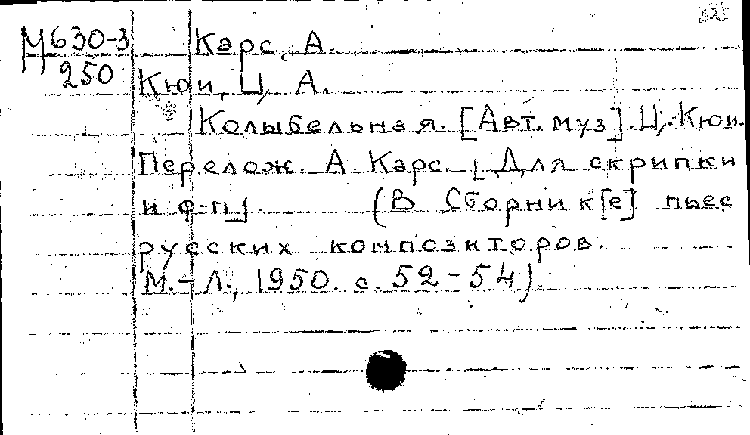 М630-3 Карс, А.
250 Кюи, Ц. А.
Колыбельная. [Авт. муз]. Ц. Кюи.
Перелож. А Карс. [Для скрипки
и ф-п]. (В Сборник[е] пьес
русских композиторов.
М.-Л., 1950. с. 52-54).